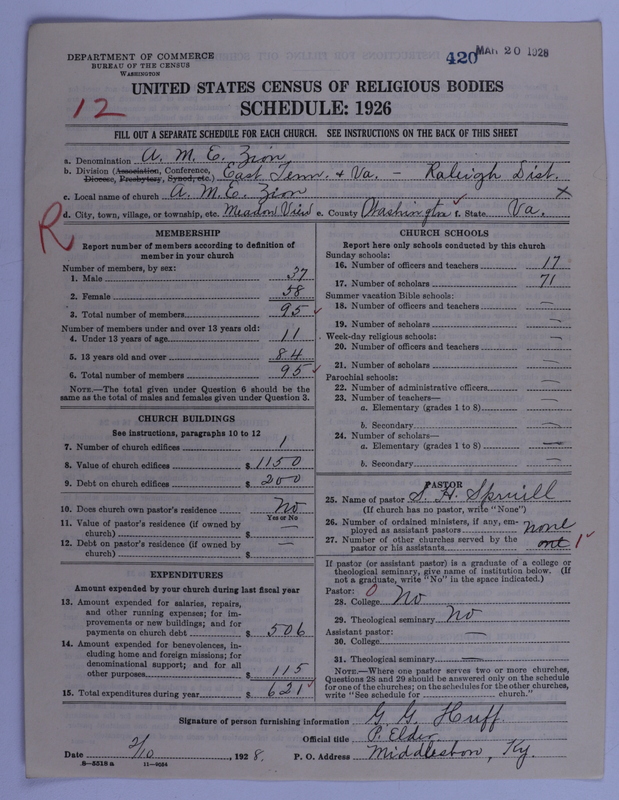 DEPARTMENT OF COMMERCE
BUREAU OF THE CENSUS
WASHINGTON
420
MAR 20 1928
UNITED STATES CENSUS OF RELIGIOUS BODIES
12
SCHEDULE: 1926
FILL OUT A SEPARATE SCHEDULE FOR EACH CHURCH. SEE INSTRUCTIONS ON THE BACK OF THIS SHEET
a. Denomination A. M. E. Zion
b. Division (Association, Conference, Diocese, Presbytery, Synod, etc.) East Tenn. & Va. – Raleigh Dist.
c. Local name of church A. M. E. Zion X
d. City, town, village, or township, etc. Meadow View e. County Washington f. State Va.
R
MEMBERSHIP
Report number of members according to definition of
member in your church
Number of members, by sex:
1. Male 37
2. Female 58
3. Total number of members 95
Number of members under and over 13 years old:
4. Under 13 years of age 11
5. 13 years old and over 84
6. Total number of members 95
NOTE.—The total given under Question 6 should be the
same as the total of males and females given under Question 3.
CHURCH BUILDINGS
See instructions, paragraphs 10 to 12
7. Number of church edifices 1
8. Value of church edifices $ 1150
9. Debt on church edifices $ 200
10. Does church own pastor's residence No
Yes or No
11. Value of pastor's residence (if owned by
church) $ —
12. Debt on pastor's residence (if owned by
church) $ —
EXPENDITURES
Amount expended by your church during last fiscal year
13. Amount expended for salaries, repairs,
and other running expenses; for im-
provements or new buildings; and for
payments on church debt $ 506
14. Amount expended for benevolences, in-
cluding home and foreign missions; for
denominational support; and for all
other purposes $ 115
15. Total expenditures during year $ 621
CHURCH SCHOOLS
Report here only schools conducted by this church
Sunday schools:
16. Number of officers and teachers 17
17. Number of scholars 71
Summer vacation Bible schools:
18. Number of officers and teachers —
19. Number of scholars —
Week-day religious schools:
20. Number of officers and teachers —
21. Number of scholars —
Parochial schools:
22. Number of administrative officers —
23. Number of teachers—
a. Elementary (grades 1 to 8) —
b. Secondary —
24. Number of scholars—
a. Elementary (grades 1 to 8) —
b. Secondary —
PASTOR
25. Name of pastor S. H. Spruill
(If church has no pastor, write "None")
26. Number of ordained ministers, if any, em-
ployed as assistant pastors none
27. Number of other churches served by the
pastor or his assistants 1
If pastor (or assistant pastor) is a graduate of a college or
theological seminary, give name of institution below. (If
not a graduate, write "No" in the space indicated.)
Pastor: 0
28. College No
29. Theological seminary No
Assistant pastor:
30. College —
31. Theological seminary —
NOTE.—Where one pastor serves two or more churches,
Questions 28 and 29 should be answered only on the schedule
for one of the churches; on the schedules for the other churches,
write "See schedule for church."
Signature of person furnishing information G. G. Huff
Official title P. Elder
Date 2/10, 1928. P. O. Address Middlesboro, Ky.
8—5518 a 11—9034